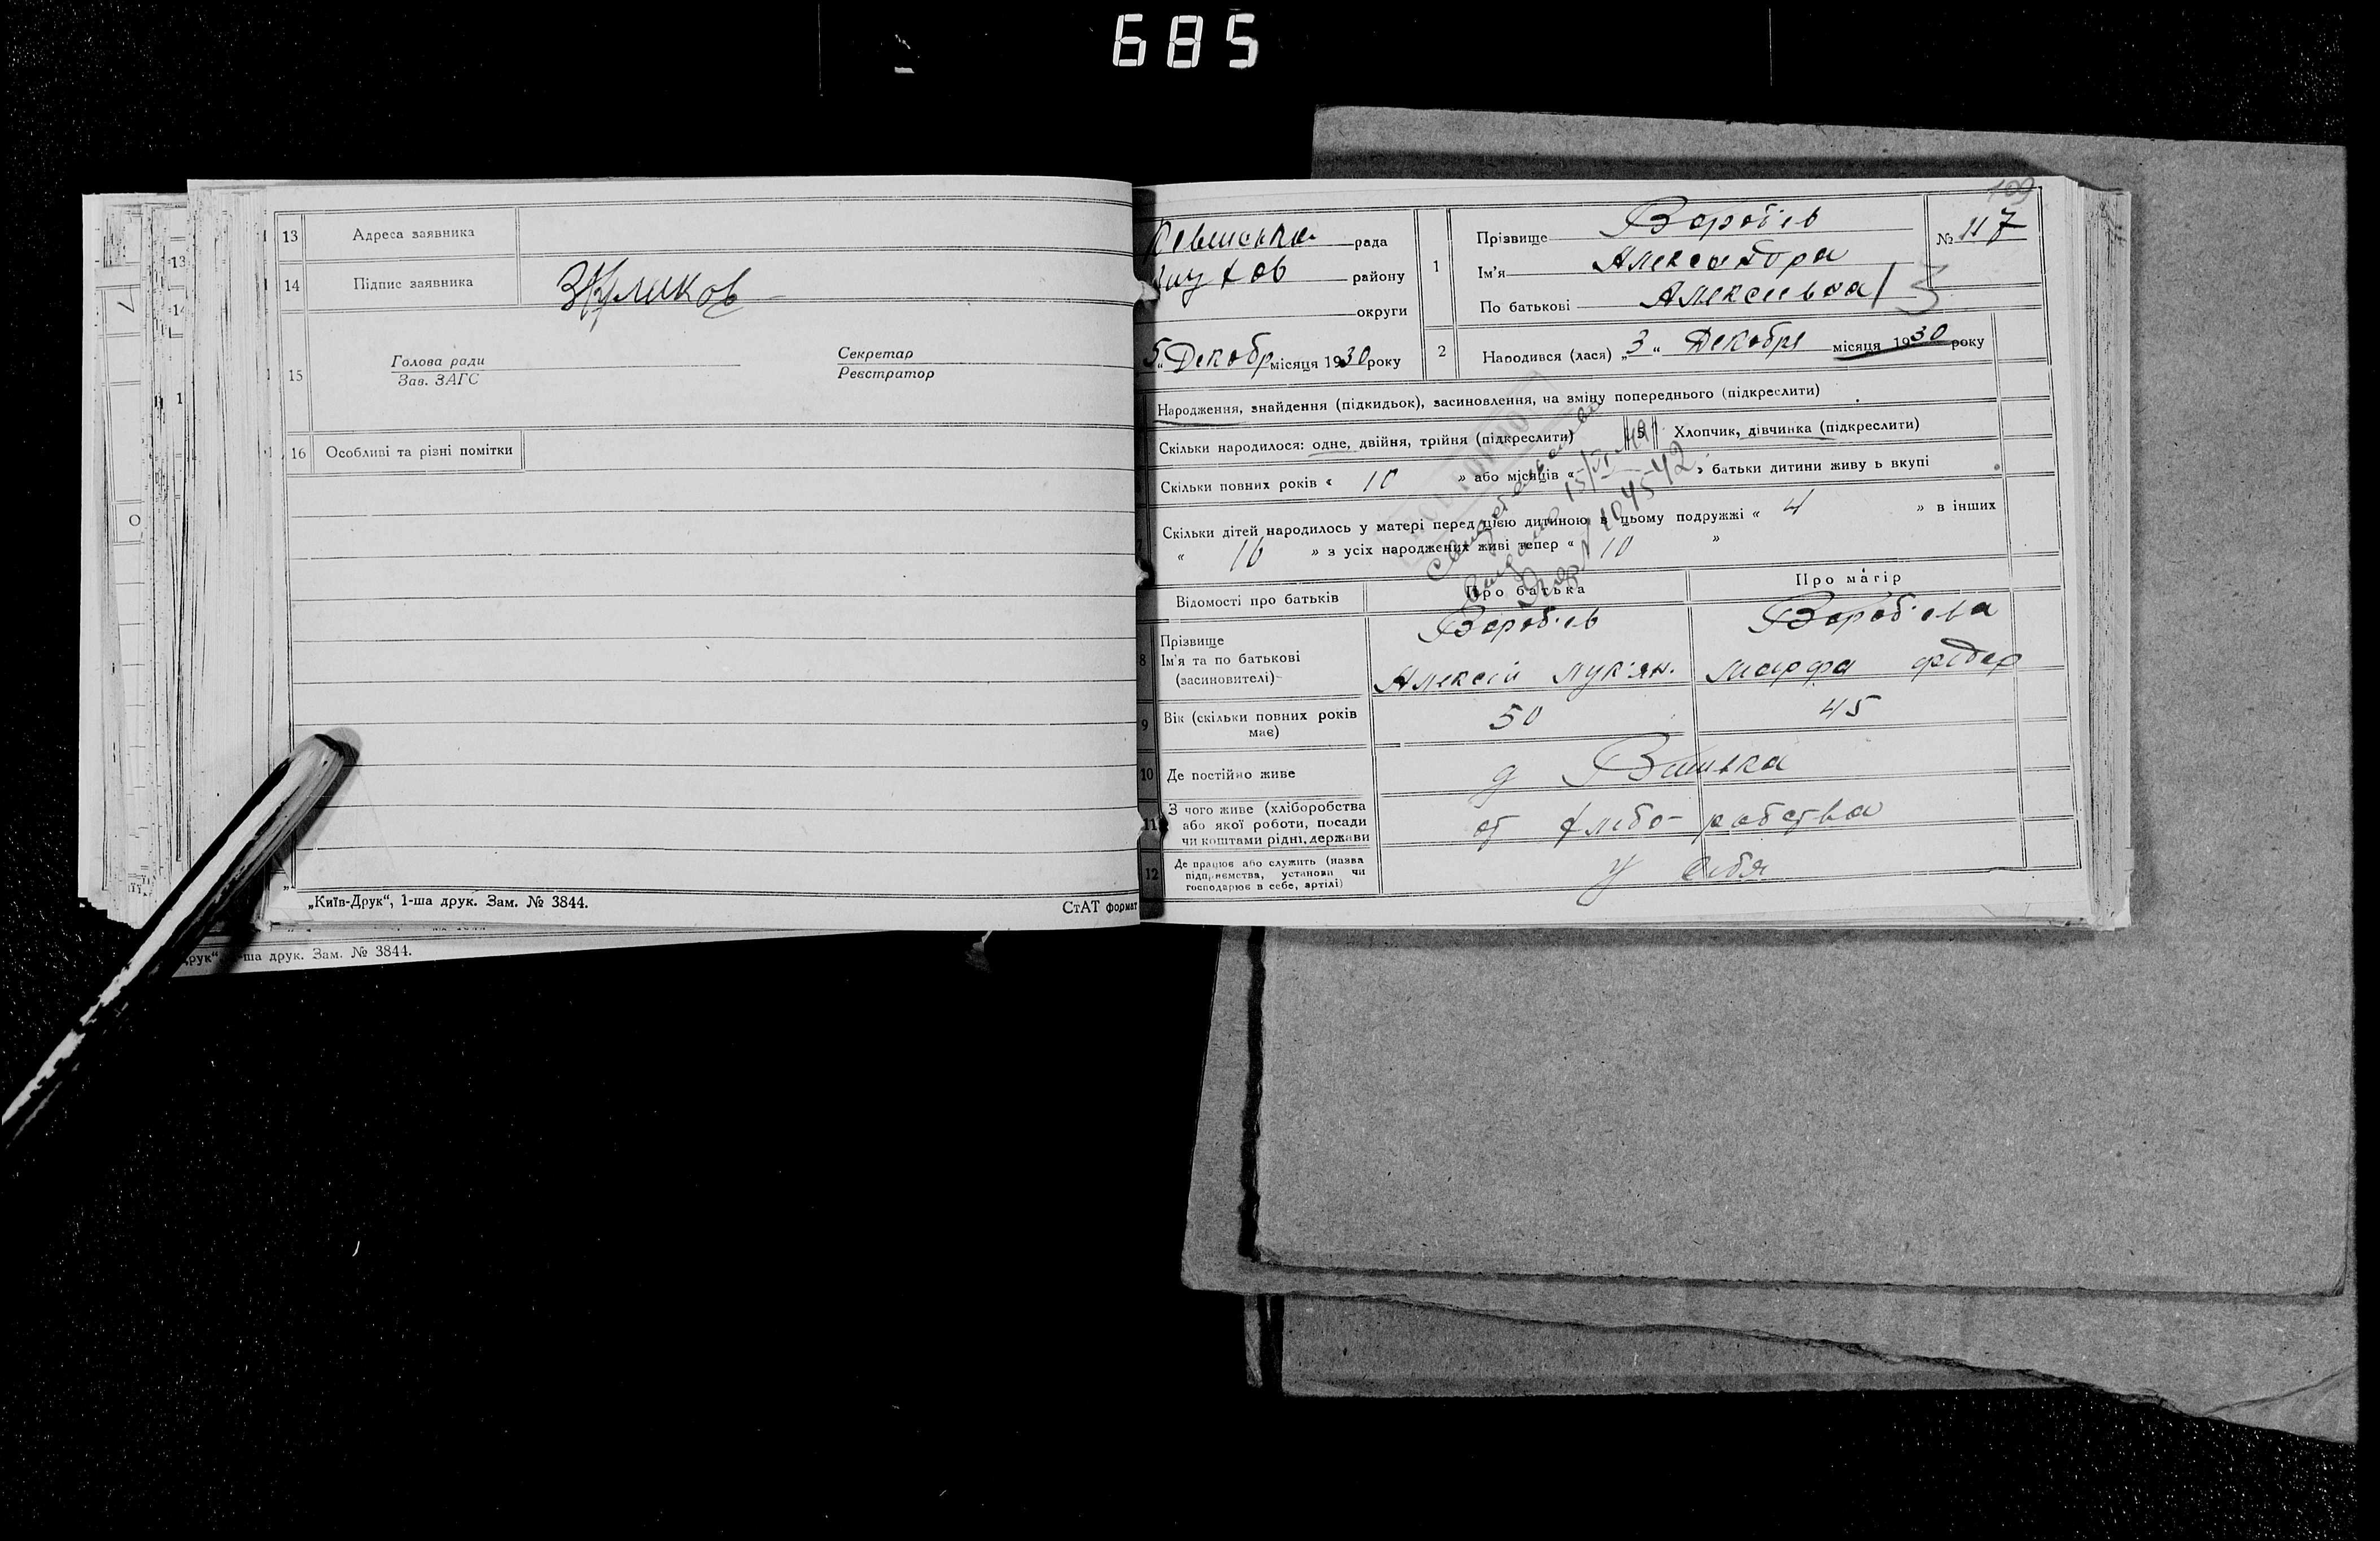 685
13 Адреса заявника
14 Підпис заявника
15 Голова ради
Зав. ЗАГС
Секретар
Реєстратор
16 Особливі та різні помітки
„Київ-Друк“, 1-ша друк. Зам. № 3844.
СтАТ формат
-ша друк. Зам. № 3844.
рада
району
округи
5 „ Декобр місяця 1930 року
1
Прізвище Вороб'ев
Ім'я Александра
По батькові Алексиевна
№ 117
2 Народився (лася) „ 3 “ Декобря місяця 1930 року
Народження, знайдення (підкидьок), засиновлення, на зміну попереднього (підкреслити)
Скільки народилося: одне, двійня, трійня (підкреслити) 5 Хлопчик, дівчинка (підкреслити)
Скільки повних років « 10 » або місяців « » батьки дитини живу ь вкупі
Скільки дітей народилось у матері перед цією дитиною в цьому подружжі « 4 » в інших
« 10 » з усіх народжених живі тепер « 10 »
Відомості про батьків
Про батька
Про матір
8 Прізвище
Ім'я та по батькові
(засиновителі)
Вороб'ев
Алексій Лук'ян.
Вороб'ева
Марфа Федор
9 Вік (скільки повних років має)
50
45
10 Де постійно живе
11 З чого живе (хліборобства
або якої роботи, посади
чи коштами рідні, держави
от хлебо-робства
12 Де працює або служить (назва
підприємства, установи чи
господарює в себе, артілі)
у себя